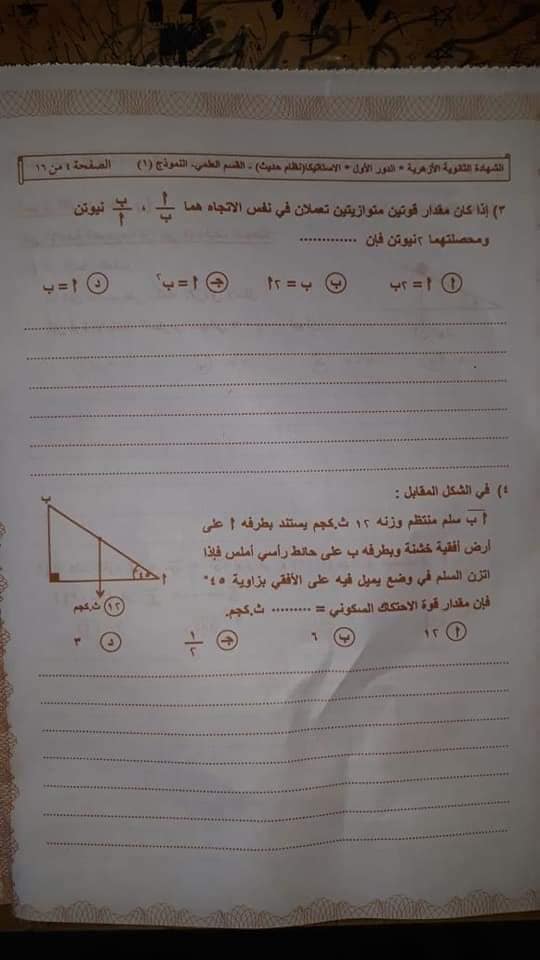 الشهادة الثانوية الأزهرية * الدور الأول * الاستاتيكا(نظام حديث) - القسم العلمي- النموذج (١) الصفحة ٤ من ١٦
٣) إذا كان مقدار قوتين متوازيتين تعملان في نفس الاتجاه هما أ/ب ، ب/أ نيوتن
ومحصلتهما ٢ نيوتن فإن .............
أ أ = ٢ب ب ب = ٢أ جـ أ = ب٢ د أ = ب
٤) في الشكل المقابل :
أ ب سلم منتظم وزنه ١٢ ث.كجم يستند بطرفه أ على
أرض أفقية خشنة وبطرفه ب على حائط رأسي أملس فإذا
اتزن السلم في وضع يميل فيه على الأفقي بزاوية ٤٥°
فإن مقدار قوة الاحتكاك السكوني = ......... ث.كجم.
ب
٤٥°
أ
١٢ ث.كجم
أ ١٢ ب ٦ جـ ١/٢ د ٣